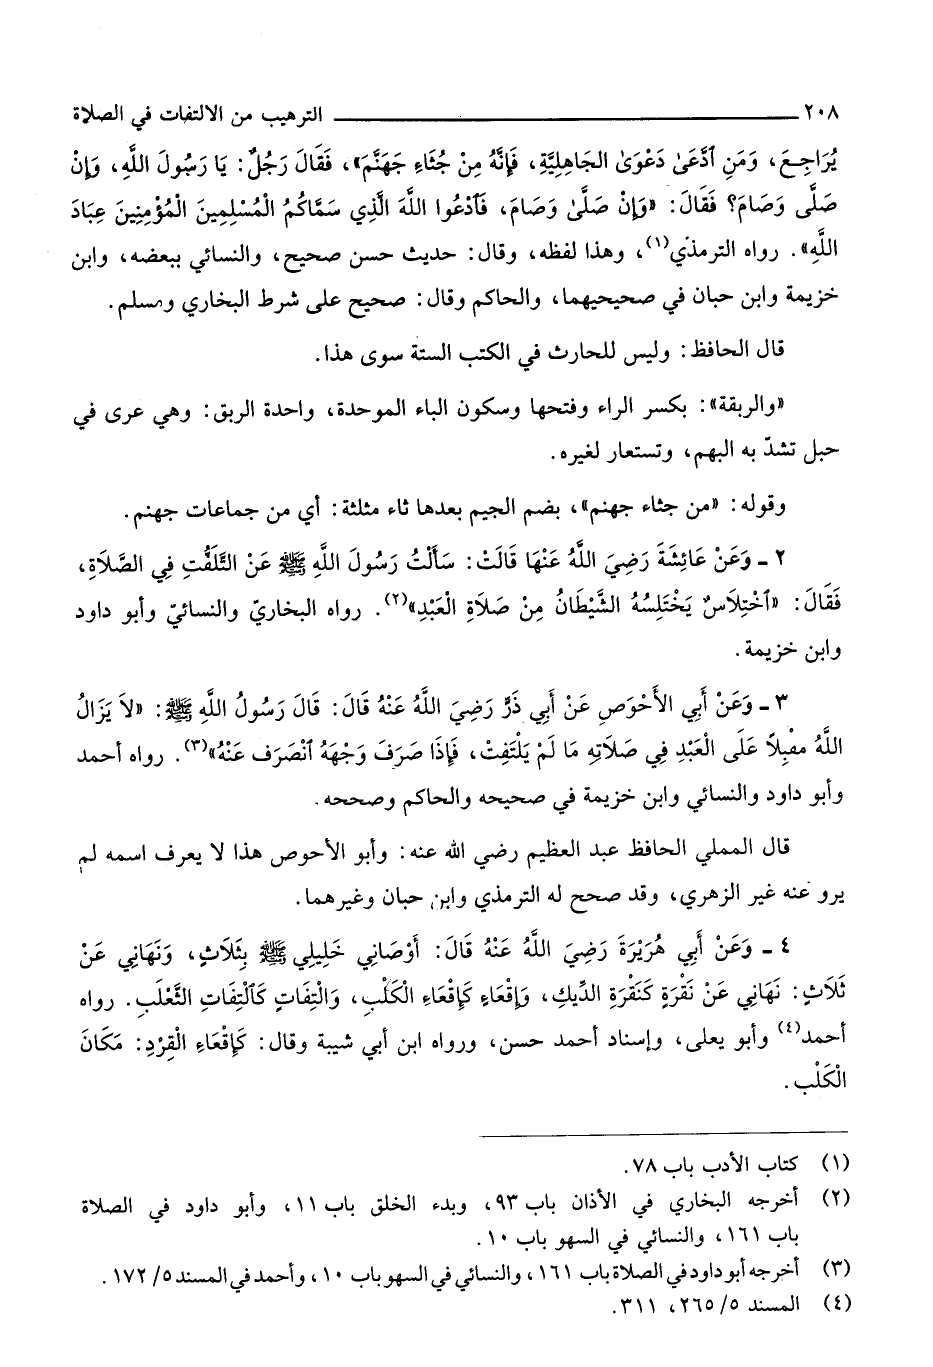 ٢٠٨ ــــــــــــــــــــــــــــــــــــ الترهيب من الالتفات في الصلاة
يُرَاجِعَ، وَمَنِ ٱدَّعَىٰ دَعْوَىٰ الجَاهِلِيَّةِ، فَإِنَّهُ مِنْ جُثَاءِ جَهَنَّمَ»، فَقَالَ رَجُلٌ: يَا رَسُولَ اللَّهِ، وَإِنْ
صَلَّى وَصَامَ؟ فَقَالَ: «وَإِنْ صَلَّىٰ وَصَامَ، فَٱدْعُوا اللَّهَ الَّذِي سَمَّاكُمُ الْمُسْلِمِينَ الْمُؤْمِنِينَ عِبَادَ
اللَّهِ». رواه الترمذي(١)، وهذا لفظه، وقال: حديث حسن صحيح، والنسائي ببعضه، وابن
خزيمة وابن حبان في صحيحيهما، والحاكم وقال: صحيح على شرط البخاري ومسلم.
قال الحافظ: وليس للحارث في الكتب الستة سوى هذا.
«والربقة»: بكسر الراء وفتحها وسكون الباء الموحدة، واحدة الربق: وهي عرى في
حبل تشدّ به البهم، وتستعار لغيره.
وقوله: «من جثاء جهنم»، بضم الجيم بعدها ثاء مثلثة: أي من جماعات جهنم.
٢ ـ وَعَنْ عَائِشَةَ رَضِيَ اللَّهُ عَنْهَا قَالَتْ: سَأَلْتُ رَسُولَ اللَّهِ ﷺ عَنْ التَّلَفُّتِ فِي الصَّلَاةِ،
فَقَالَ: «ٱخْتِلَاسٌ يَخْتَلِسُهُ الشَّيْطَانُ مِنْ صَلَاةِ الْعَبْدِ»(٢). رواه البخاريّ والنسائيّ وأبو داود
وابن خزيمة.
٣ ـ وَعَنْ أَبِي الأَحْوَصِ عَنْ أَبِي ذَرٍّ رَضِيَ اللَّهُ عَنْهُ قَالَ: قَالَ رَسُولُ اللَّهِ ﷺ: «لاَ يَزَالُ
اللَّهُ مقْبِلاً عَلَى الْعَبْدِ فِي صَلَاتِهِ مَا لَمْ يَلْتَفِتْ، فَإِذَا صَرَفَ وَجْهَهُ ٱنْصَرَفَ عَنْهُ»(٣). رواه أحمد
وأبو داود والنسائي وابن خزيمة في صحيحه والحاكم وصححه.
قال المملي الحافظ عبد العظيم رضي الله عنه: وأبو الأحوص هذا لا يعرف اسمه لم
يرو عنه غير الزهري، وقد صحح له الترمذي وابن حبان وغيرهما.
٤ ـ وَعَنْ أَبِي هُرَيْرَةَ رَضِيَ اللَّهُ عَنْهُ قَالَ: أَوْصَانِي خَلِيلِي ﷺ بِثَلَاثٍ، وَنَهَانِي عَنْ
ثَلَاثٍ: نَهَانِي عَنْ نَقْرَةٍ كَنَقْرَةِ الدِّيكِ، وَإِقْعَاءٍ كَإِقْعَاءِ الْكَلْبِ، وَالْتِفَاتٍ كَٱلْتِفَاتِ الثَّعْلَبِ. رواه
أحمد(٤) وأبو يعلى، وإسناد أحمد حسن، ورواه ابن أبي شيبة وقال: كَإِقْعَاءِ الْقِرْدِ: مَكَانَ
الْكَلْبِ.
(١) كتاب الأدب باب ٧٨.
(٢) أخرجه البخاري في الأذان باب ٩٣، وبدء الخلق باب ١١، وأبو داود في الصلاة
باب ١٦١، والنسائي في السهو باب ١٠.
(٣) أخرجه أبو داود في الصلاة باب ١٦١، والنسائي في السهو باب ١٠، وأحمد في المسند ٥/ ١٧٢.
(٤) المسند ٥/ ٢٦٥، ٣١١.